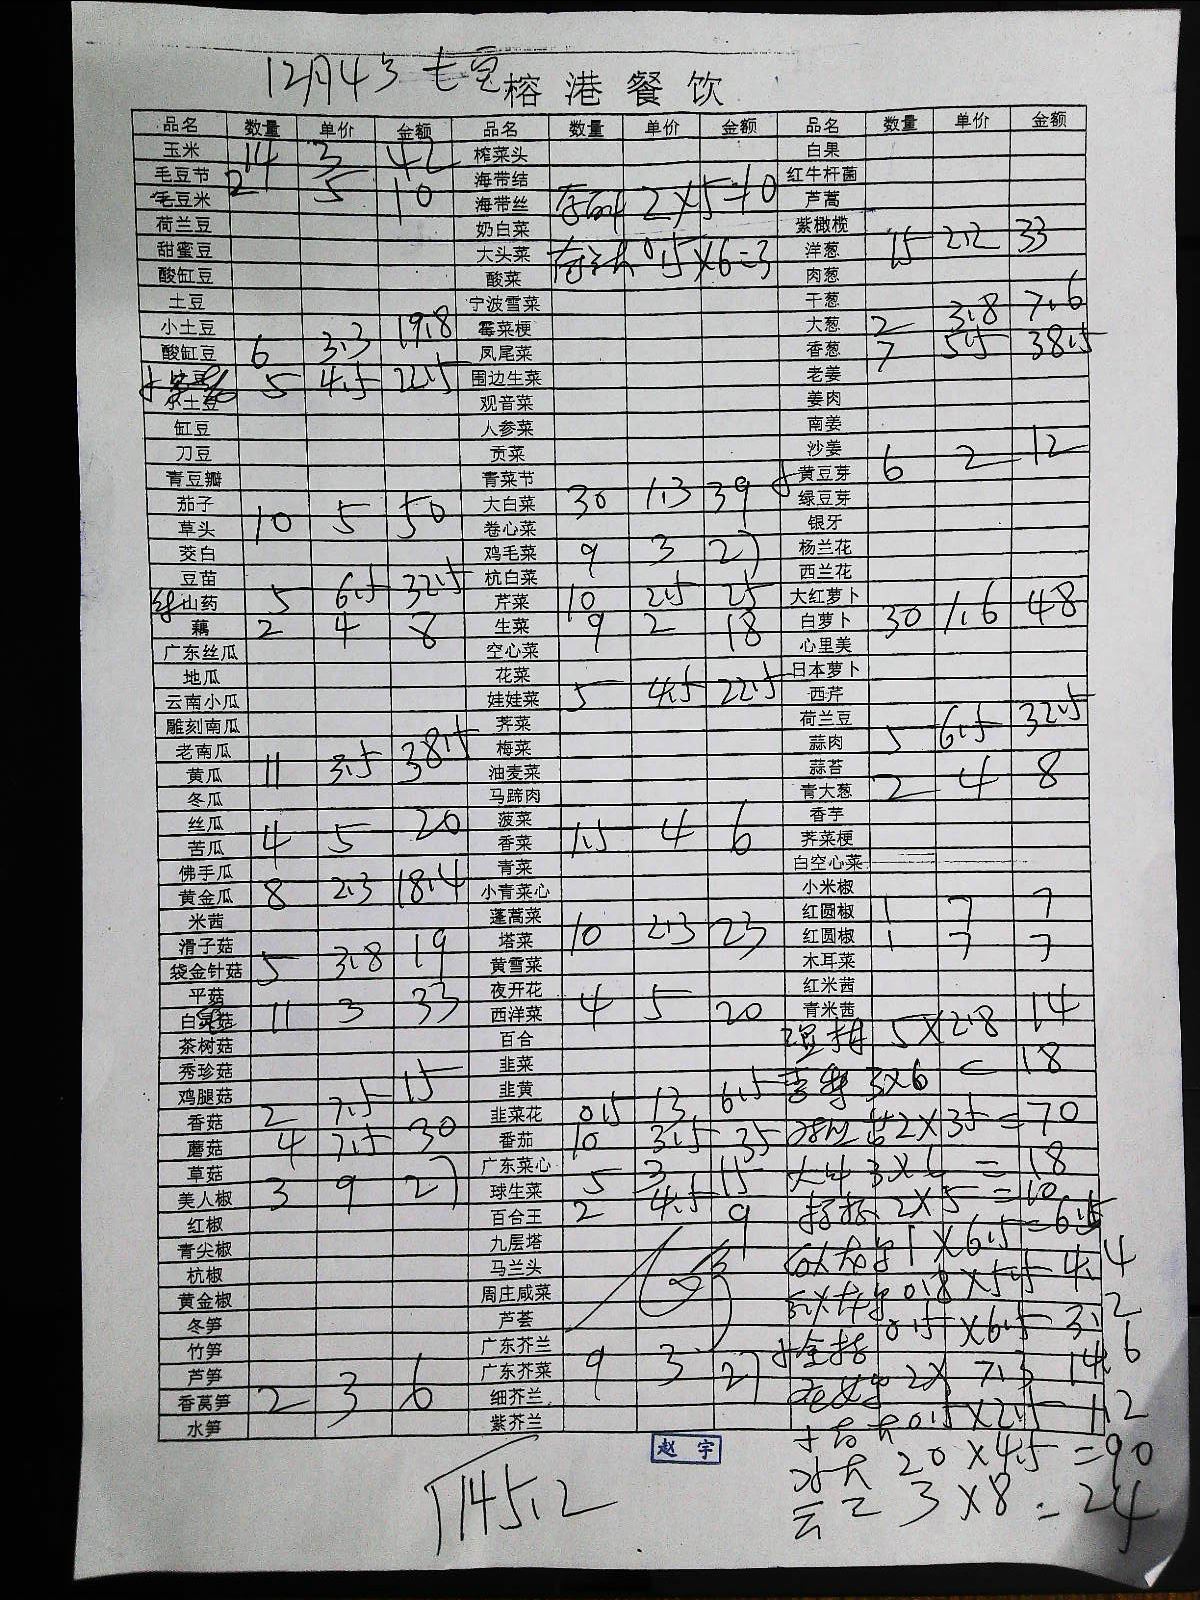 12月4号 毛豆 榕港餐饮
品名 数量 单价 金额 品名 数量 单价 金额 品名 数量 单价 金额
玉米 14 3 42 榨菜头 白果
毛豆节 2 5 10 海带结 红牛杆菌
毛豆米 海带丝 2×5=10 芦蒿
荷兰豆 奶白菜 紫橄榄
甜蜜豆 大头菜 0.5×6=3 洋葱 15 2.2 33
酸缸豆 酸菜 肉葱
土豆 宁波雪菜 干葱
小土豆 霉菜梗 大葱 2 3.8 7.6
酸缸豆 6 3.3 19.8 凤尾菜 香葱 7 5.5 38.5
5 4.5 22.5 围边生菜 老姜
小土豆 观音菜 姜肉
缸豆 人参菜 南姜
刀豆 贡菜 沙姜
青豆瓣 青菜节 黄豆芽 6 2 12
茄子 大白菜 30 1.3 39 绿豆芽
草头 10 5 50 卷心菜 银牙
茭白 鸡毛菜 9 3 27 杨兰花
豆苗 杭白菜 西兰花
山药 5 6.5 32.5 芹菜 10 2.5 25 大红萝卜
藕 2 4 8 生菜 9 2 18 白萝卜 30 1.6 48
广东丝瓜 空心菜 心里美
地瓜 花菜 日本萝卜
云南小瓜 娃娃菜 5 4.5 22.5 西芹
雕刻南瓜 荠菜 荷兰豆
老南瓜 梅菜 蒜肉 5 6.5 32.5
黄瓜 11 3.5 38.5 油麦菜 蒜苔
冬瓜 马蹄肉 青大葱 2 4 8
丝瓜 菠菜 香芋
苦瓜 4 5 20 香菜 1.5 4 6 荠菜梗
佛手瓜 青菜 白空心菜
黄金瓜 8 2.3 18.4 小青菜心 小米椒
米茜 蓬蒿菜 红圆椒 1 7 7
滑子菇 塔菜 10 2.3 23 红圆椒 1 7 7
袋金针菇 5 3.8 19 黄雪菜 木耳菜
平菇 夜开花 红米茜
白灵菇 11 3 33 西洋菜 4 5 20 青米茜
茶树菇 百合 5×2.8 14
秀珍菇 韭菜 3×6 = 18
鸡腿菇 韭黄
香菇 2 7.5 15 韭菜花 0.5 13 6.5 2×35=70
蘑菇 4 7.5 30 番茄 10 3.5 35
草菇 广东菜心 3×6=18
美人椒 3 9 27 球生菜 5 3 15 2×5=10
红椒 百合王 2 4.5 9 1×6.5=6.5
青尖椒 九层塔
杭椒 马兰头 0.8×5.5 4.4
黄金椒 周庄咸菜
冬笋 芦荟 0.5×6.5 3.2
竹笋 广东芥兰
芦笋 广东芥菜 9 3 27 2× 7.3 14.6
香莴笋 2 3 6 细芥兰
水笋 紫芥兰 0.5×2.5 1.2
赵宇
20×4.5=90
3×8=24
1145.2